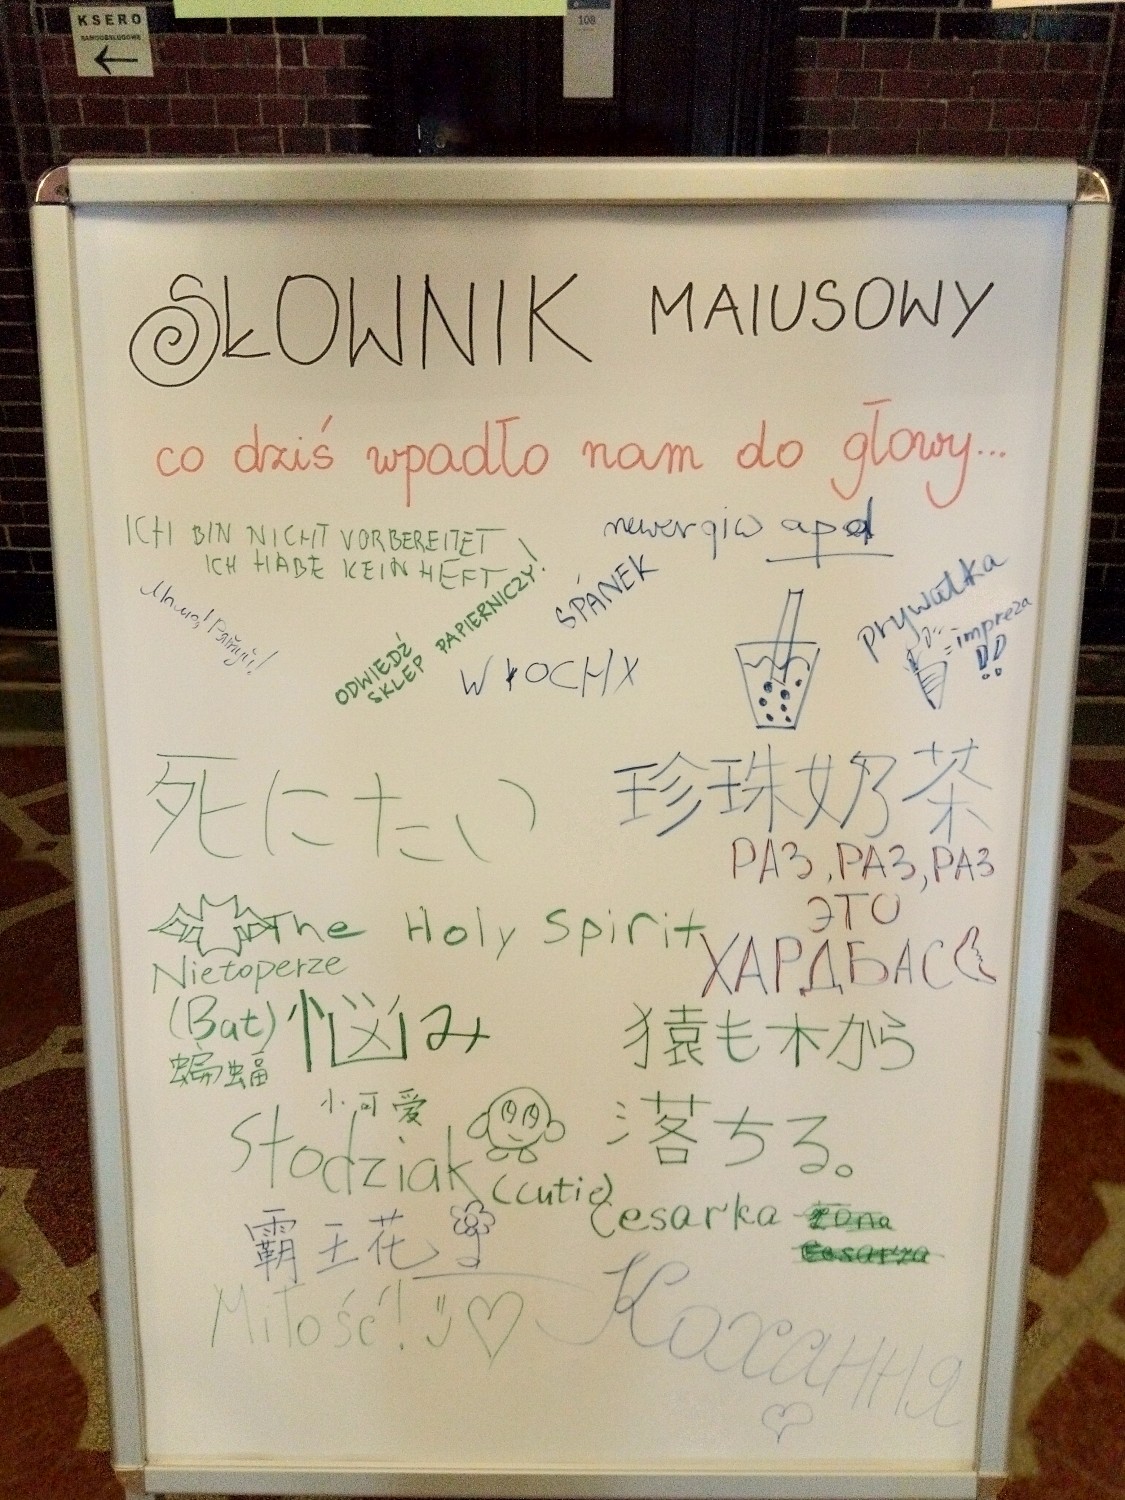 KSERO
SAMOOBSŁUGOWE
108
SŁOWNIK MAIUSOWY
co dziś wpadło nam do głowy...
ICH BIN NICHT VORBEREITET
ICH HABE KEIN HEFT!
ODWIEDŹ
SKLEP PAPIERNICZY!
SPÁNEK
WŁOCHY
prywatka
impreza
!!
死にたい
珍珠奶茶
РАЗ, РАЗ, РАЗ
ЭТО
ХАРДБАС
The Holy Spirit
Nietoperze
(Bat)
蝙蝠
悩み
猿も木から
落ちる。
小可爱
Słodziak
(cutie)
Cesarka
żona
Cesarza
霸王花
Miłość!
Кохання